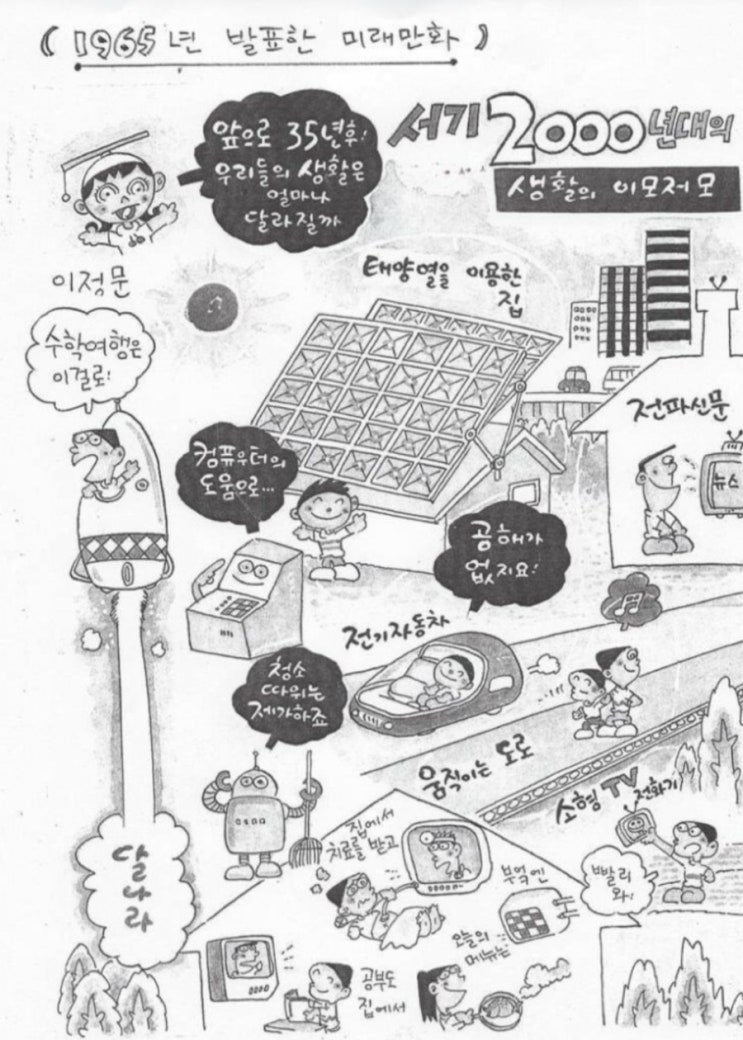 (1965년 발표한 미래만화)
앞으로 35년후!
우리들의 생활은
얼마나
달라질까
서기 2000년대의
생활의 이모저모
이정문
태양열을 이용한
집
수학여행은
이걸로!
전파신문
뉴스
컴퓨우터의
도움으로...
공해가
없지요!
전기자동차
청소
따위는
제가하죠
움직이는 도로
소형 TV 전화기
빨리
와!
집에서
치료를 받고
부엌엔
오늘의
메뉴는
공부도
집에서
달나라